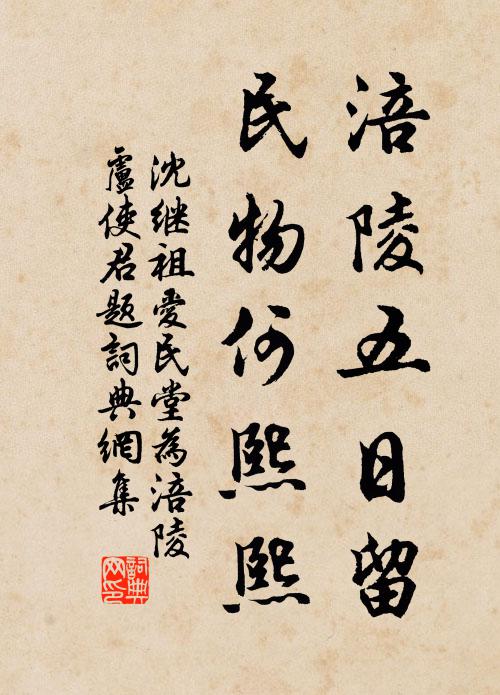 涪陵五日留
民物何熙熙
沈继祖爱民堂為涪陵
盧使君题詞典網集
詞典网印